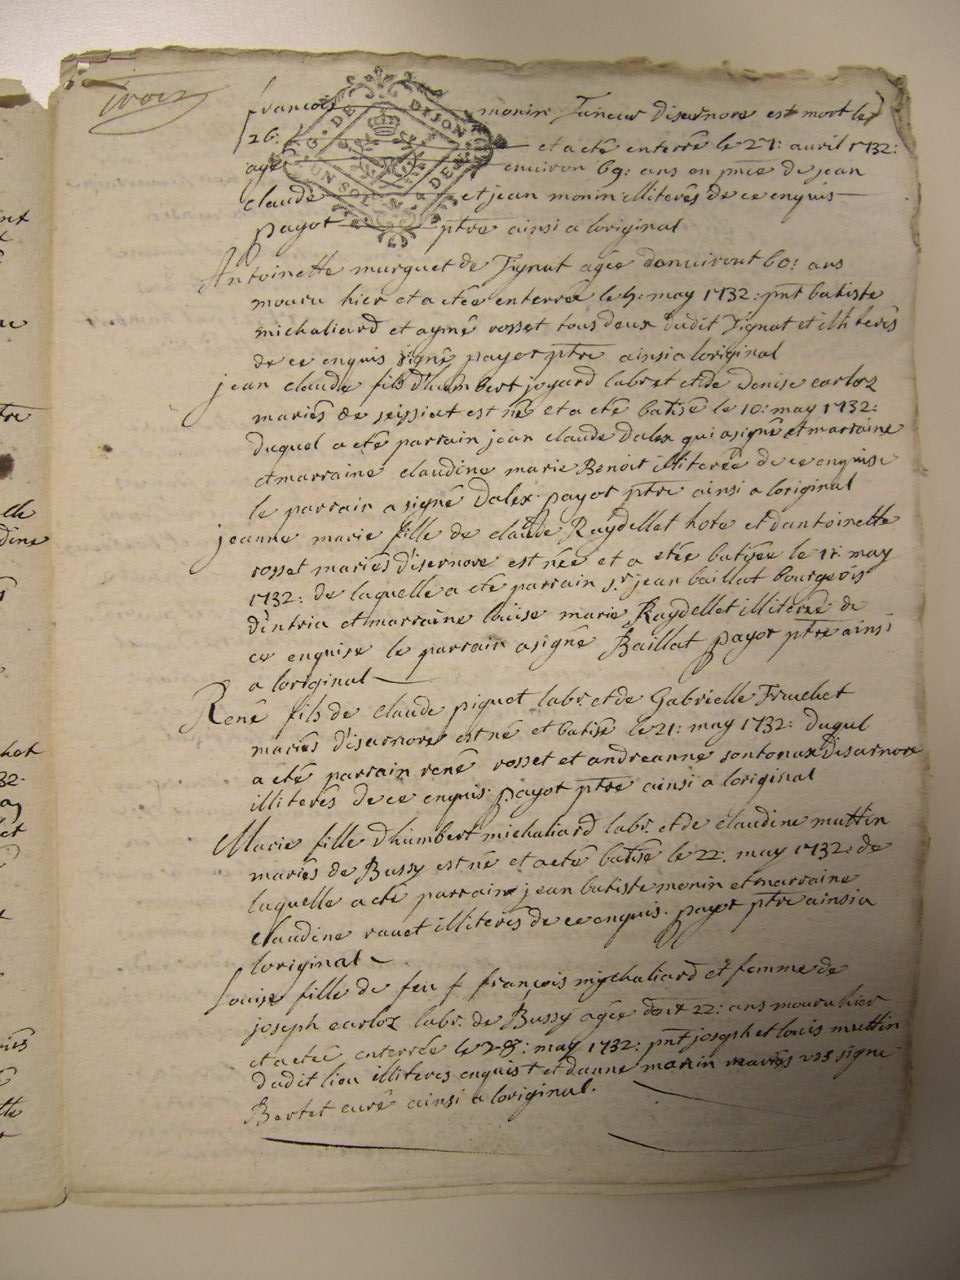 trois
G. DE DIJON
UN SOL
françois monin Tuneur disernore est mort le
26. et a eté enterré le 27: avril 1732:
agé environ 69: ans en pnce de jean
claude et jean monin illiterés de ce enquis
payot ptre ainsi a loriginal
Antoinette murguet de Tignat agée denviront 60: ans
mouru hier et a etée enterrée le 7: may 1732: pnt batiste
michaliard et aymé rosset tous deux dudit Tignat et illiterés
de ce enquis signé payot ptre ainsi a loriginal
jean claude fils dhumbert joyard labr et de Denise carloz
mariés de seissiat est né et a eté batisé le 10: may 1732:
duquel a eté parrain jean claude dalex qui a signé et marraine
et marraine claudine marie Benoit illiterée de ce enquise
le parrain a signé dalex payot ptre ainsi a loriginal
jeanne marie fille de claude Raydellet hote et dantoinette
rosset mariés disernore est née et a etée batisée le 11: may
1732: de laquelle a eté parrain sr jean baillat bourgeois
dintria et marraine louise marie Raydellet illiterée de
ce enquise le parrain a signé Baillat payot ptre ainsi
a loriginal
René fils de claude piquet labr. et de Gabrielle Fruchet
mariés disernore est né et batisé le 21: may 1732: duqul
a eté parrain rené rosset et andreanne sontonax disernore
illiterés de ce enquis payot ptre ainsi a loriginal
Marie fille dhumbert michaliard labr. et de claudine muttin
mariés de Bussy est né et a eté batisé le 22: may 1732: de
laquelle a eté parrain jean batiste monin et marraine
claudine ravet illiterés de ce enquis. payot ptre ainsi a
loriginal
Louise fille de feu f françois michaliard et femme de
joseph carloz labr. de Bussy agée de 22: ans mouru hier
et a eté enterrée le 28: may 1732: pnt joseph et louis muttin
dudit lieu illiteres enquis et danne monin mariés signé
Bertet curé ainsi a loriginal.